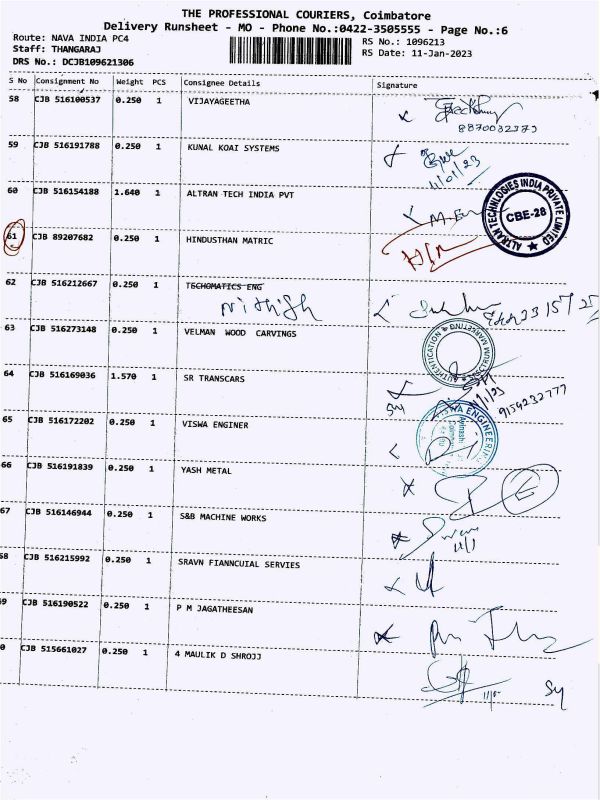 THE PROFESSIONAL COURIERS, Coimbatore
Delivery Runsheet - MO - Phone No.:0422-3505555 - Page No.:6
Route: NAVA INDIA PC4
RS No.: 1096213
Staff: THANGARAJ
RS Date: 11-Jan-2023
DRS No.: DCJB109621306
S No Consignment No Weight PCS Consignee Details Signature
58 CJB 516100537 0.250 1 VIJAYAGEETHA
59 CJB 516191788 0.250 1 KUNAL KOAI SYSTEMS
11/01/23
60 CJB 516154188 1.640 1 ALTRAN TECH INDIA PVT
ALTRAN TECHNLOGIES INDIA PRIVATE LIMITED
CBE-28
61 CJB 89207682 0.250 1 HINDUSTHAN MATRIC
62 CJB 516212667 0.250 1 TECHOMATICS ENG
Nithish
63 CJB 516273148 0.250 1 VELMAN WOOD CARVINGS
AUTHENTICATION
64 CJB 516169036 1.570 1 SR TRANSCARS
9159232777
65 CJB 516172202 0.250 1 VISWA ENGINER
66 CJB 516191839 0.250 1 YASH METAL
67 CJB 516146944 0.250 1 S&B MACHINE WORKS
11/1
68 CJB 516215992 0.250 1 SRAVN FIANNCUIAL SERVIES
9 CJB 516190522 0.250 1 P M JAGATHEESAN
0 CJB 515661027 0.250 1 4 MAULIK D SHROJJ